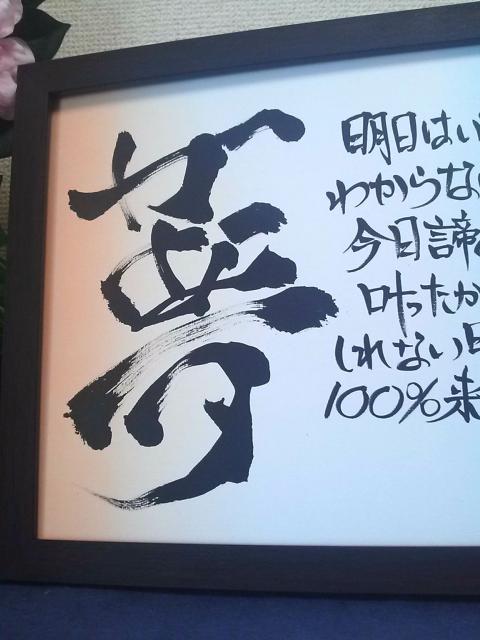 夢
明日はい
わからな
今日諦
叶ったか
しれない日
100%来